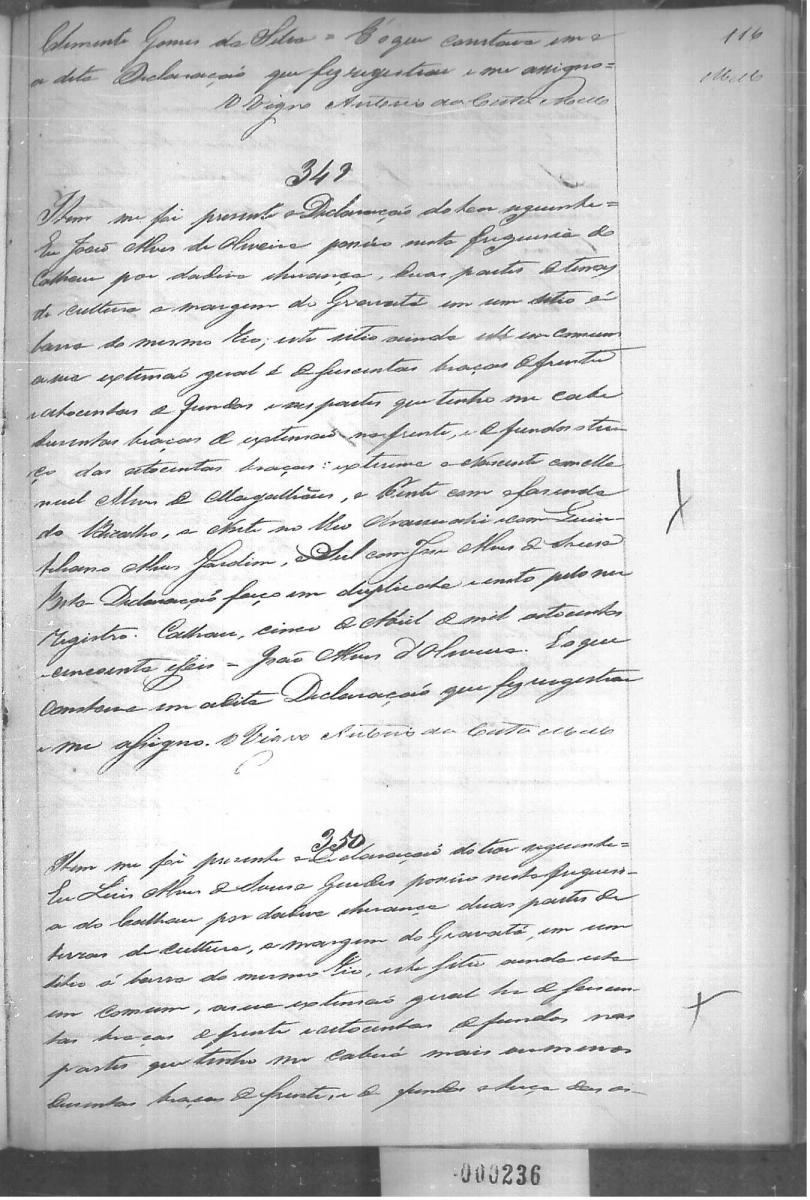 Clemente Gomes da Silva = E o que constava em a
a dita Declaração que fiz registrar e me assigno =
O Vigro Antonio da Costa Mello
116
Mello
349
Item me foi presente a Declaração do teor seguinte =
Eu João Alves de Oliveira possuo nesta freguesia do
Calhau por dadiva e herança, duas partes de terras
de cultura a margem do Gravatá em um sitio á
barra do mesmo Rio; este sitio ainda está em comum
a sua extensão geral é de seiscentas braças de frente
e oitocentas de fundos e nas partes que tenho me cabe
duzentas braças de extensão na frente, e de fundos o ter-
ço das oitocentas braças: extrema o Nascente com Ma
noel Alves de Magalhães, o Poente com a fazenda
do, o Norte no Rio Arassuahi e com Quin-
tiliano Alves Jardim, o Sul com José Alves de Sousa
Esta Declaração faço em duplicata e pelo meu
registro. Calhau, cinco de Abril de mil oitocentos
e cincoenta e seis = João Alves d'Oliveira. E o que
constava em a dita Declaração que fiz registrar
e me assigno. O Vigro Antonio da Costa Mello
350
Item me foi presente a Declaração do teor seguinte =
Eu Luis Alves de Sousa Guedes possuo nesta freguesi-
a do Calhau por dadiva e herança duas partes de
terras de cultura, a margem do Gravatá, em um
sitio á barra do mesmo Rio, este sitio ainda esta
em comum, a sua extensão geral he de seiscen-
tas braças de frente e oitocentas de fundos nas
partes que tenho me caberá mais ou menos
duzentas braças de frente, e de fundos o terço das oi-
000236